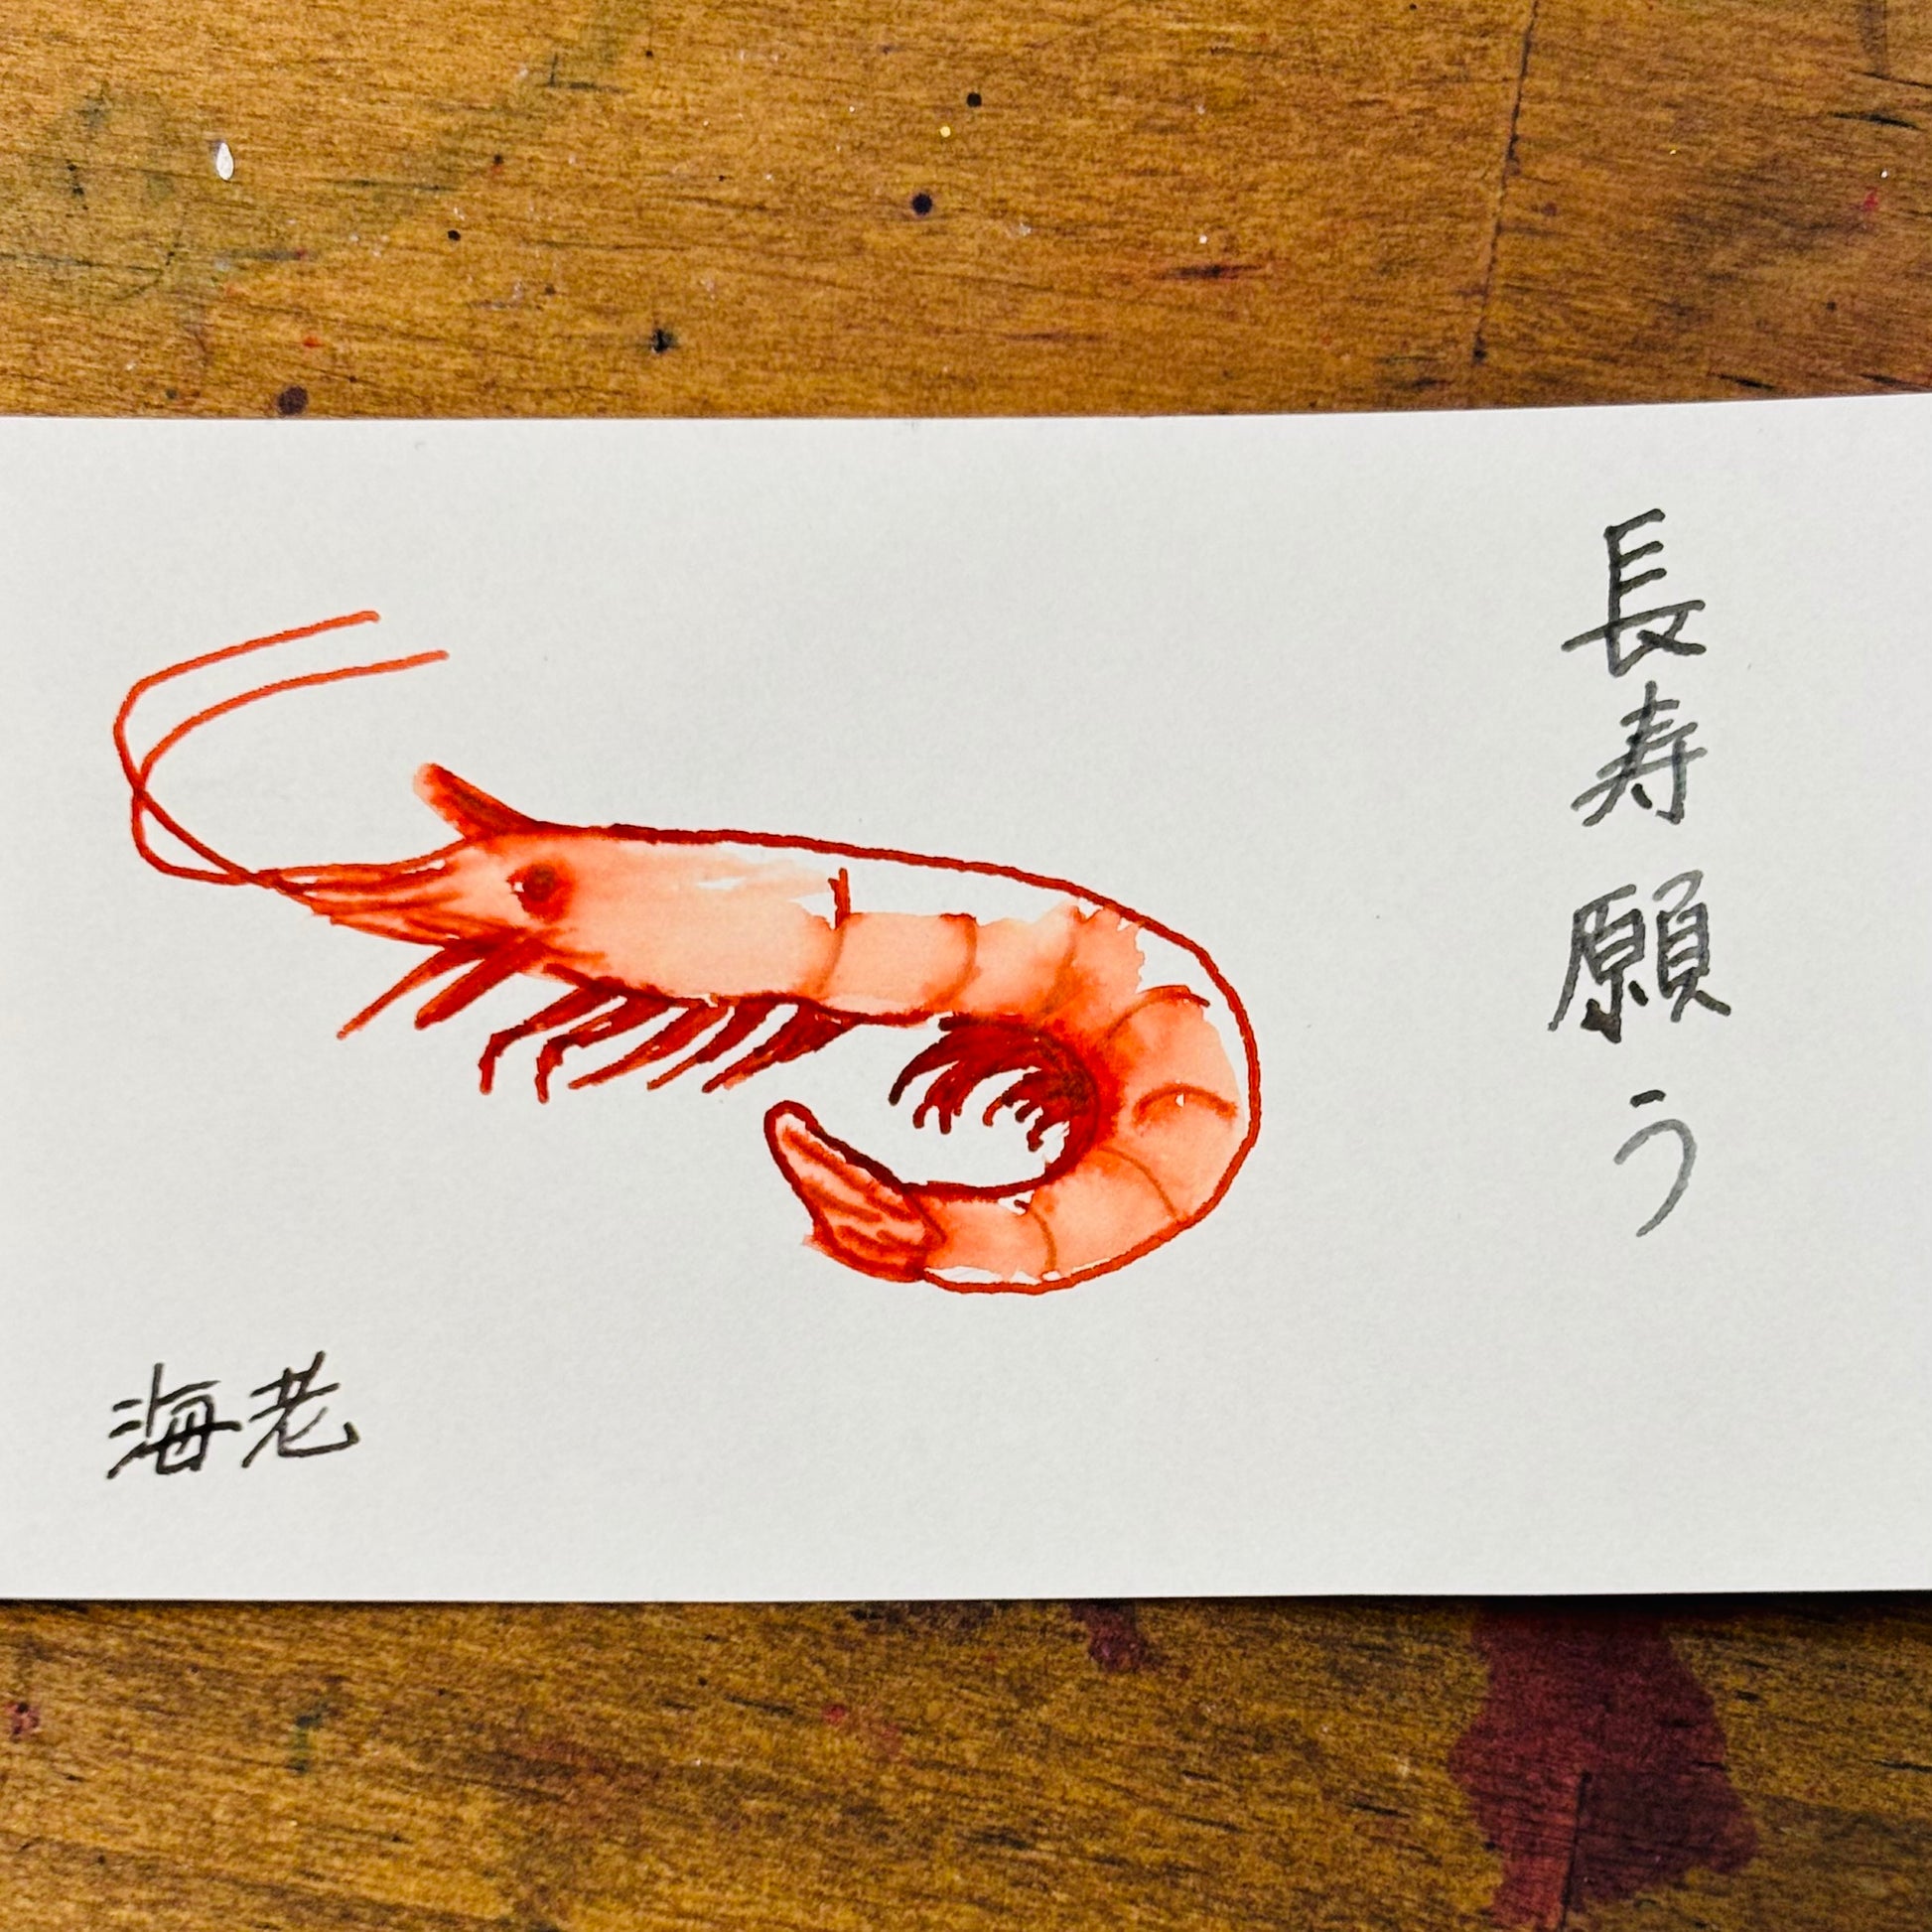 長寿願う
海老